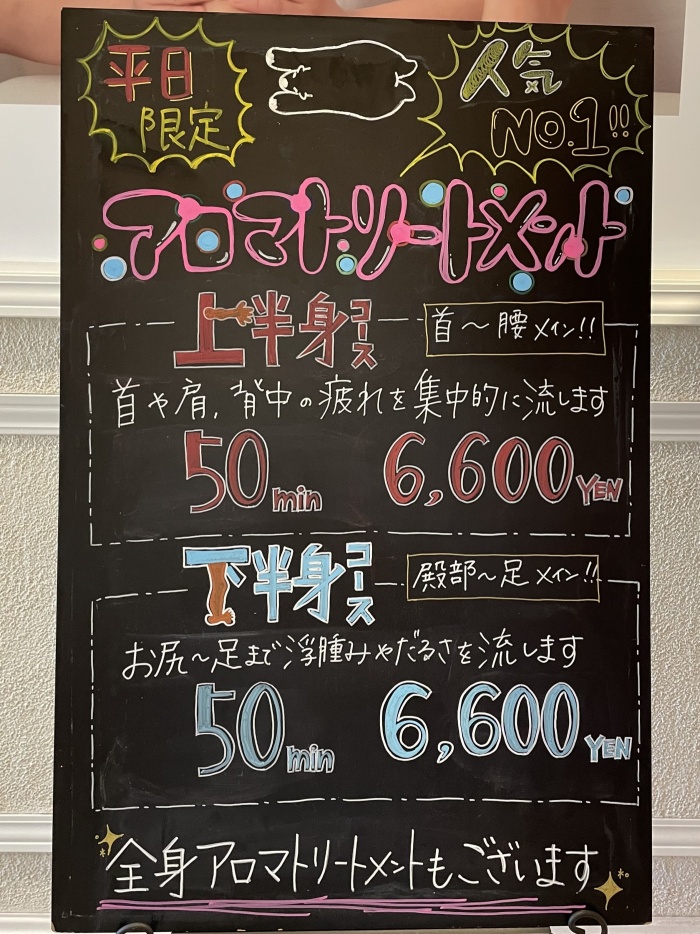 平日
限定
人気
NO.1!!
アロマトリートメント
上半身コース
首～腰メイン!!
首や肩,背中の疲れを集中的に流します
50min 6,600YEN
下半身コース
殿部～足メイン!!
お尻～足まで浮腫みやだるさを流します
50min 6,600YEN
全身アロマトリートメントもございます